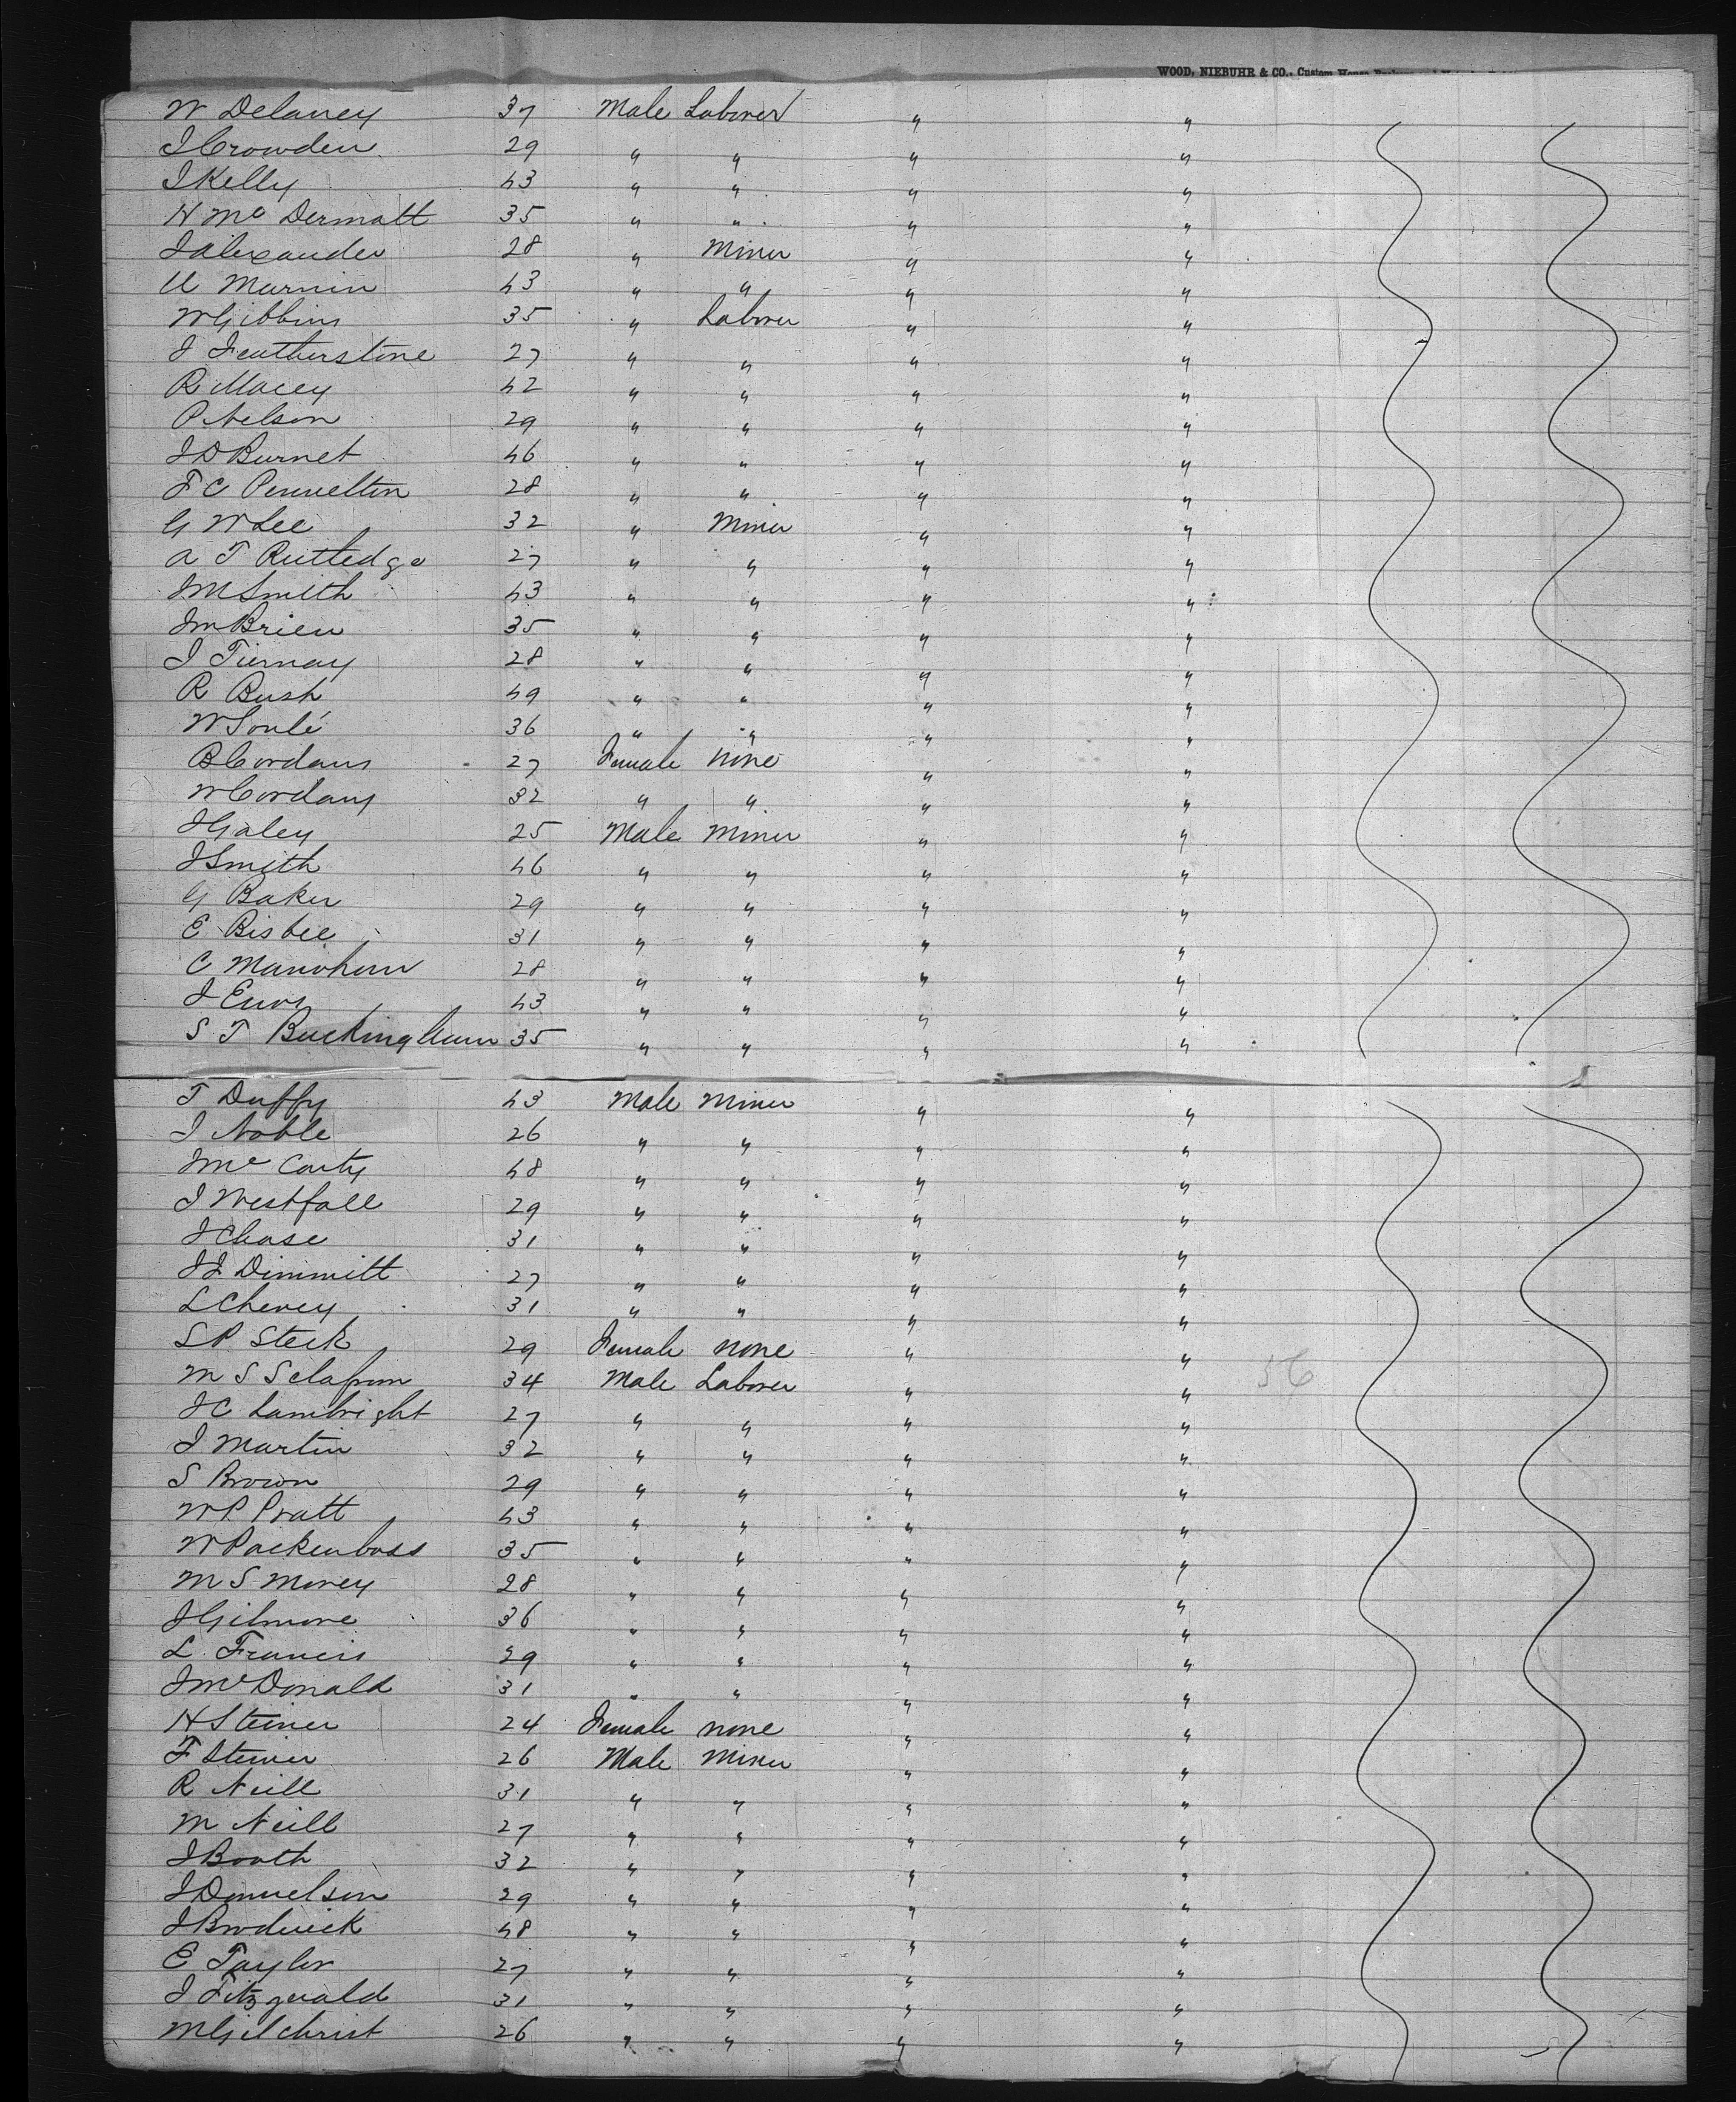 WOOD, NIEBUHR & CO., Custom House
W Delaney 37 Male Laborer " "
J Crowden 29 " " " "
J Kelly 43 " " " "
H Mc Dermatt 35 " " " "
J Alexander 28 " Miner " "
U Murnin 43 " " " "
W Gibbins 35 " Laborer " "
J Featherstone 27 " " " "
R Macey 42 " " " "
P Nelson 29 " " " "
J D Burnet 46 " " " "
F C Pennelton 28 " " " "
G W Lee 32 " Miner " "
A T Rutledge 27 " " " "
J M Smith 43 " " " "
J m Brien 35 " " " "
J Tiernay 28 " " " "
R Bush 49 " " " "
W Soulé 36 " " " "
B Cordans 27 Female none " "
W Cordany 32 " " " "
J Galey 25 Male Miner " "
J Smith 46 " " " "
G Baker 29 " " " "
E Bisbee 31 " " " "
C 28 " " " "
J Enos 43 " " " "
S T Buckingham 35 " " " "
T Duffy 43 Male Miner " "
J Noble 26 " " " "
J Mc Carty 48 " " " "
J Westfall 29 " " " "
J Chase 31 " " " "
J J Dimmitt 27 " " " "
L Cheney 31 " " " "
S P Steck 29 Female none " "
M S 34 Male Laborer " " 56
J C Lambright 27 " " " "
J Martin 32 " " " "
S Brown 29 " " " "
W P Pratt 43 " " " "
W Packenboss 35 " " " "
M S Morey 28 " " " "
J Gilmore 36 " " " "
L Francis 29 " " " "
J Mc Donald 31 " " " "
H Steiner 24 Female none " "
F Steiner 26 Male Miner " "
R Neill 31 " " " "
M Neill 27 " " " "
J Booth 32 " " " "
J Donnelson 29 " " " "
J Broderick 48 " " " "
E Taylor 27 " " " "
J Fitzgerald 31 " " " "
M Gilchrist 26 " " " "